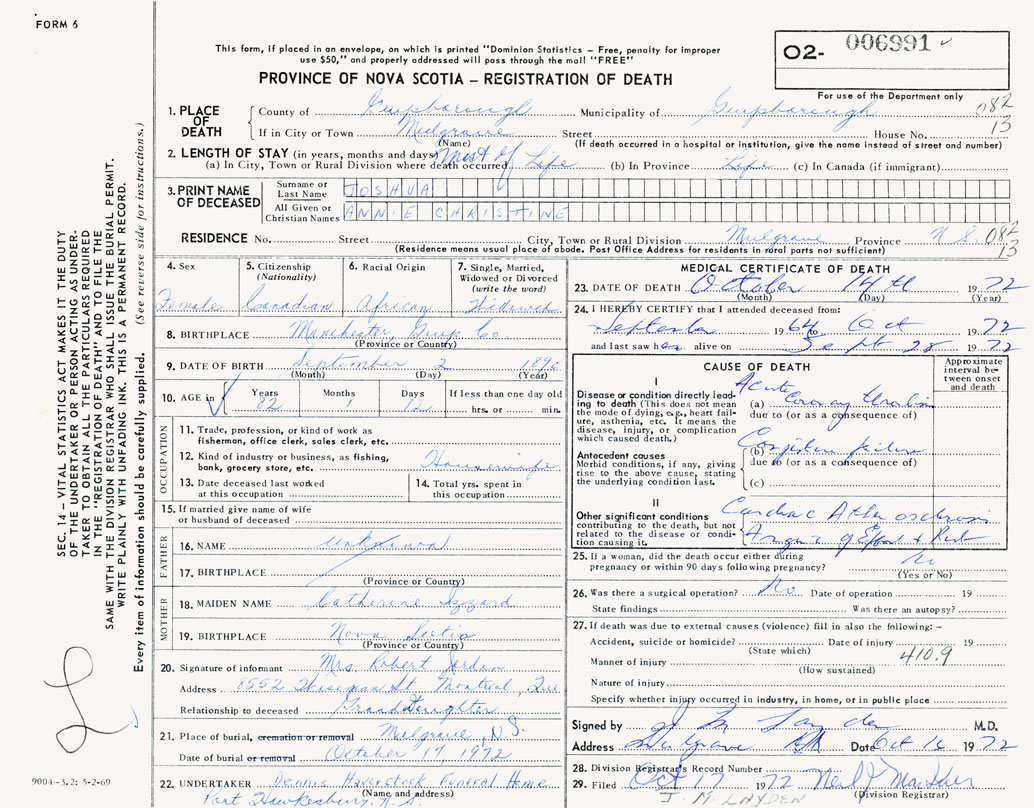 FORM 6
This form, if placed in an envelope, on which is printed "Dominion Statistics – Free, penalty for improper
use $50," and properly addressed will pass through the mail "FREE"
PROVINCE OF NOVA SCOTIA – REGISTRATION OF DEATH
O2- 006991
For use of the Department only
082
13
1. PLACE OF DEATH
County of Guysborough Municipality of Guysborough
If in City or Town Mulgrave Street House No.
(Name) (If death occurred in a hospital or institution, give the name instead of street and number)
2. LENGTH OF STAY (in years, months and days)
(a) In City, Town or Rural Division where death occurred Most of Life (b) In Province Life (c) In Canada (if immigrant)
3. PRINT NAME OF DECEASED
Surname or Last Name JOSHUA
All Given or Christian Names ANNIE CHRISTINE
RESIDENCE No. Street City, Town or Rural Division Mulgrave Province N.S. 082
(Residence means usual place of abode. Post Office Address for residents in rural parts not sufficient) 13
4. Sex Female
5. Citizenship (Nationality) Canadian
6. Racial Origin African
7. Single, Married, Widowed or Divorced (write the word) Widowed
8. BIRTHPLACE Manchester Guys. Co
(Province or Country)
9. DATE OF BIRTH September 2 1890
(Month) (Day) (Year)
10. AGE in Years 82 Months 1 Days 12 If less than one day old hrs. or min.
OCCUPATION
11. Trade, profession, or kind of work as
fisherman, office clerk, sales clerk, etc.
12. Kind of industry or business, as fishing,
bank, grocery store, etc. Housewife
13. Date deceased last worked
at this occupation
14. Total yrs. spent in
this occupation
15. If married give name of wife
or husband of deceased
FATHER
16. NAME Unknown
17. BIRTHPLACE
(Province or Country)
MOTHER
18. MAIDEN NAME Catherine Izzard
19. BIRTHPLACE Nova Scotia
(Province or Country)
20. Signature of informant Mrs. Robert Jordan
Address 8552 Wiseman St. Montreal, Que
Relationship to deceased Granddaughter
21. Place of burial, cremation or removal Mulgrave, N.S.
Date of burial or removal October 17, 1972
22. UNDERTAKER Dennis Haverstock Funeral Home
(Name and address)
Port Hawkesbury, N.S.
MEDICAL CERTIFICATE OF DEATH
23. DATE OF DEATH October 14th 1972
(Month) (Day) (Year)
24. I HEREBY CERTIFY that I attended deceased from:
September 1964 to Oct 1972
and last saw her alive on Sept 28 1972
CAUSE OF DEATH
Approximate interval between onset and death
I
Disease or condition directly leading to death (This does not mean
the mode of dying, e.g., heart failure, asthenia, etc. It means the
disease, injury, or complication
which caused death.)
Acute
(a) Coronary thrombosis
due to (or as a consequence of)
Antecedent causes
Morbid conditions, if any, giving
rise to the above cause, stating
the underlying condition last.
Congestive failure
(b)
due to (or as a consequence of)
(c)
II
Other significant conditions
contributing to the death, but not
related to the disease or condition causing it.
Cardiac Atherosclerosis
Angina of Effort & Rest
25. If a woman, did the death occur either during
pregnancy or within 90 days following pregnancy? No
(Yes or No)
26. Was there a surgical operation? No. Date of operation 19
State findings Was there an autopsy?
27. If death was due to external causes (violence) fill in also the following: –
Accident, suicide or homicide? Date of injury 19
(State which) 410.9
Manner of injury
(How sustained)
Nature of injury
Specify whether injury occurred in industry, in home, or in public place
Signed by J M Layden M.D.
Address Mulgrave NS Date Oct 16 1972
28. Division Registrar's Record Number
29. Filed Oct 17 1972
(Division Registrar)
J. M. LAYDEN
SEC. 14 – VITAL STATISTICS ACT MAKES IT THE DUTY
OF THE UNDERTAKER OR PERSON ACTING AS UNDERTAKER TO OBTAIN ALL THE PARTICULARS REQUIRED
IN THE "REGISTRATION OF DEATH" AND TO FILE THE
SAME WITH THE DIVISION REGISTRAR WHO SHALL ISSUE THE BURIAL PERMIT.
WRITE PLAINLY WITH UNFADING INK. THIS IS A PERMANENT RECORD.
Every item of information should be carefully supplied. (See reverse side for instructions.)
9004-3.2: 5-2-69